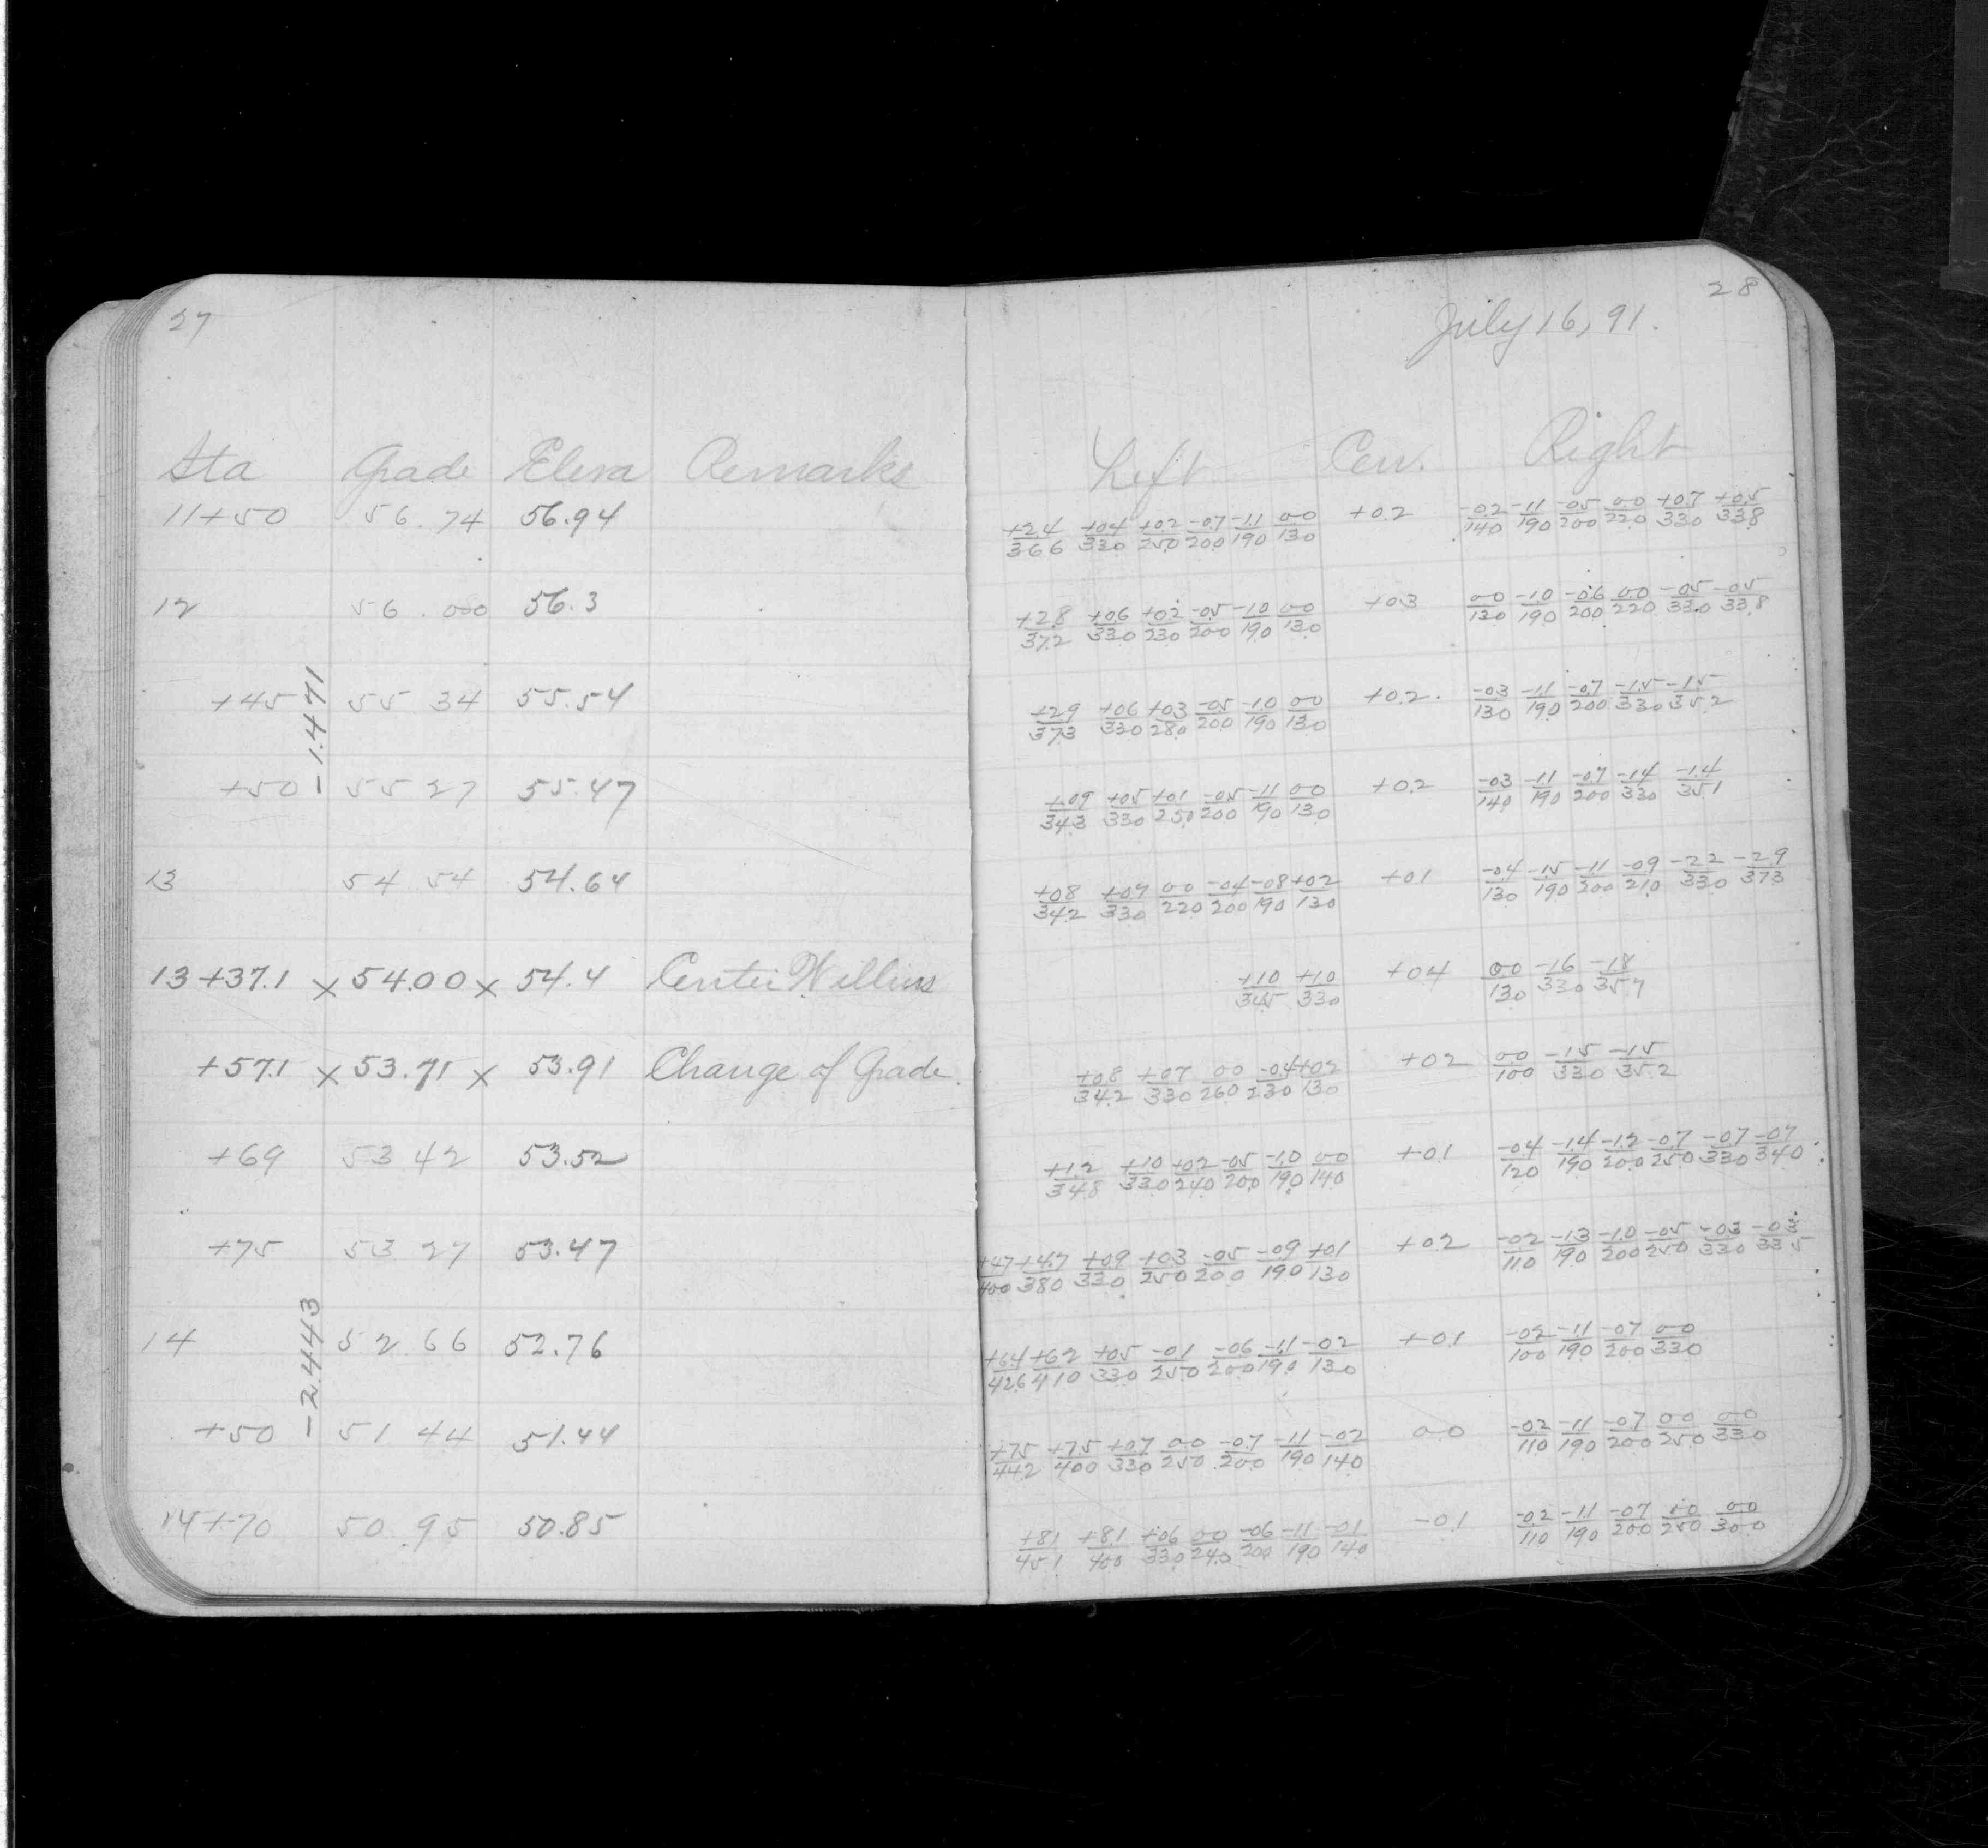 27
Sta Grade Eleva Remarks
11+50 56.74 56.94
12 56.000 56.3
+45 55 34 55.54
-1.471
+50 55 27 55.47
13 54 54 54.64
13+37.1 x 54.00 x 54.4 Center Willins
+57.1 x 53.71 x 53.91 Change of Grade.
+69 53 42 53.52
+75 53 27 53.47
14 52.66 52.76
-2.443
+50 51 44 51.44
14+70 50.95 50.85
28
July 16, 91.
Left Cen. Right
+2.4/366 +04/330 +0.2/250 -0.7/200 -1.1/190 00/130 +0.2 -0.2/140 -1.1/190 -05/200 00/220 +0.7/330 +0.5/338
+2.8/37.2 +06/330 +02/230 -05/200 -10/190 00/130 +03 00/130 -10/190 -06/200 00/220 -05/330 -05/33.8
+29/373 +06/330 +03/280 -05/200 -10/190 00/130 +02. -03/130 -11/190 -0.7/200 -1.5/330 -15/35.2
+09/343 +05/330 +01/250 -05/200 -11/190 00/130 +02 -03/140 -11/190 -07/200 -14/330 -1.4/351
+08/342 +07/330 00/220 -04/200 -08/190 +02/130 +01 -04/130 -15/190 -11/200 -09/210 -22/330 -29/373
+10/345 +10/330 +04 00/130 -16/330 -18/35.7
+08/342 +07/330 00/260 -04/230 +02/130 +02 00/100 -15/330 -15/35.2
+1.2/348 +10/330 +02/240 -05/200 -10/190 00/140 +01 -04/120 -14/190 -12/200 -07/250 -07/330 -07/340
+47/400 +4.7/380 +09/330 +03/250 -05/200 -09/190 +01/130 +02 -02/110 -13/190 -10/200 -05/250 -03/330 -03/335
+64/426 +62/410 +05/330 -01/250 -06/200 -11/190 -02/130 +01 -02/100 -11/190 -07/200 00/330
+75/442 +75/400 +07/330 00/250 -07/200 -11/190 -02/140 00 -02/110 -11/190 -07/200 00/250 00/330
+81/451 +81/400 +06/330 00/240 -06/200 -11/190 -01/140 -01 -02/110 -11/190 -07/200 00/250 00/300